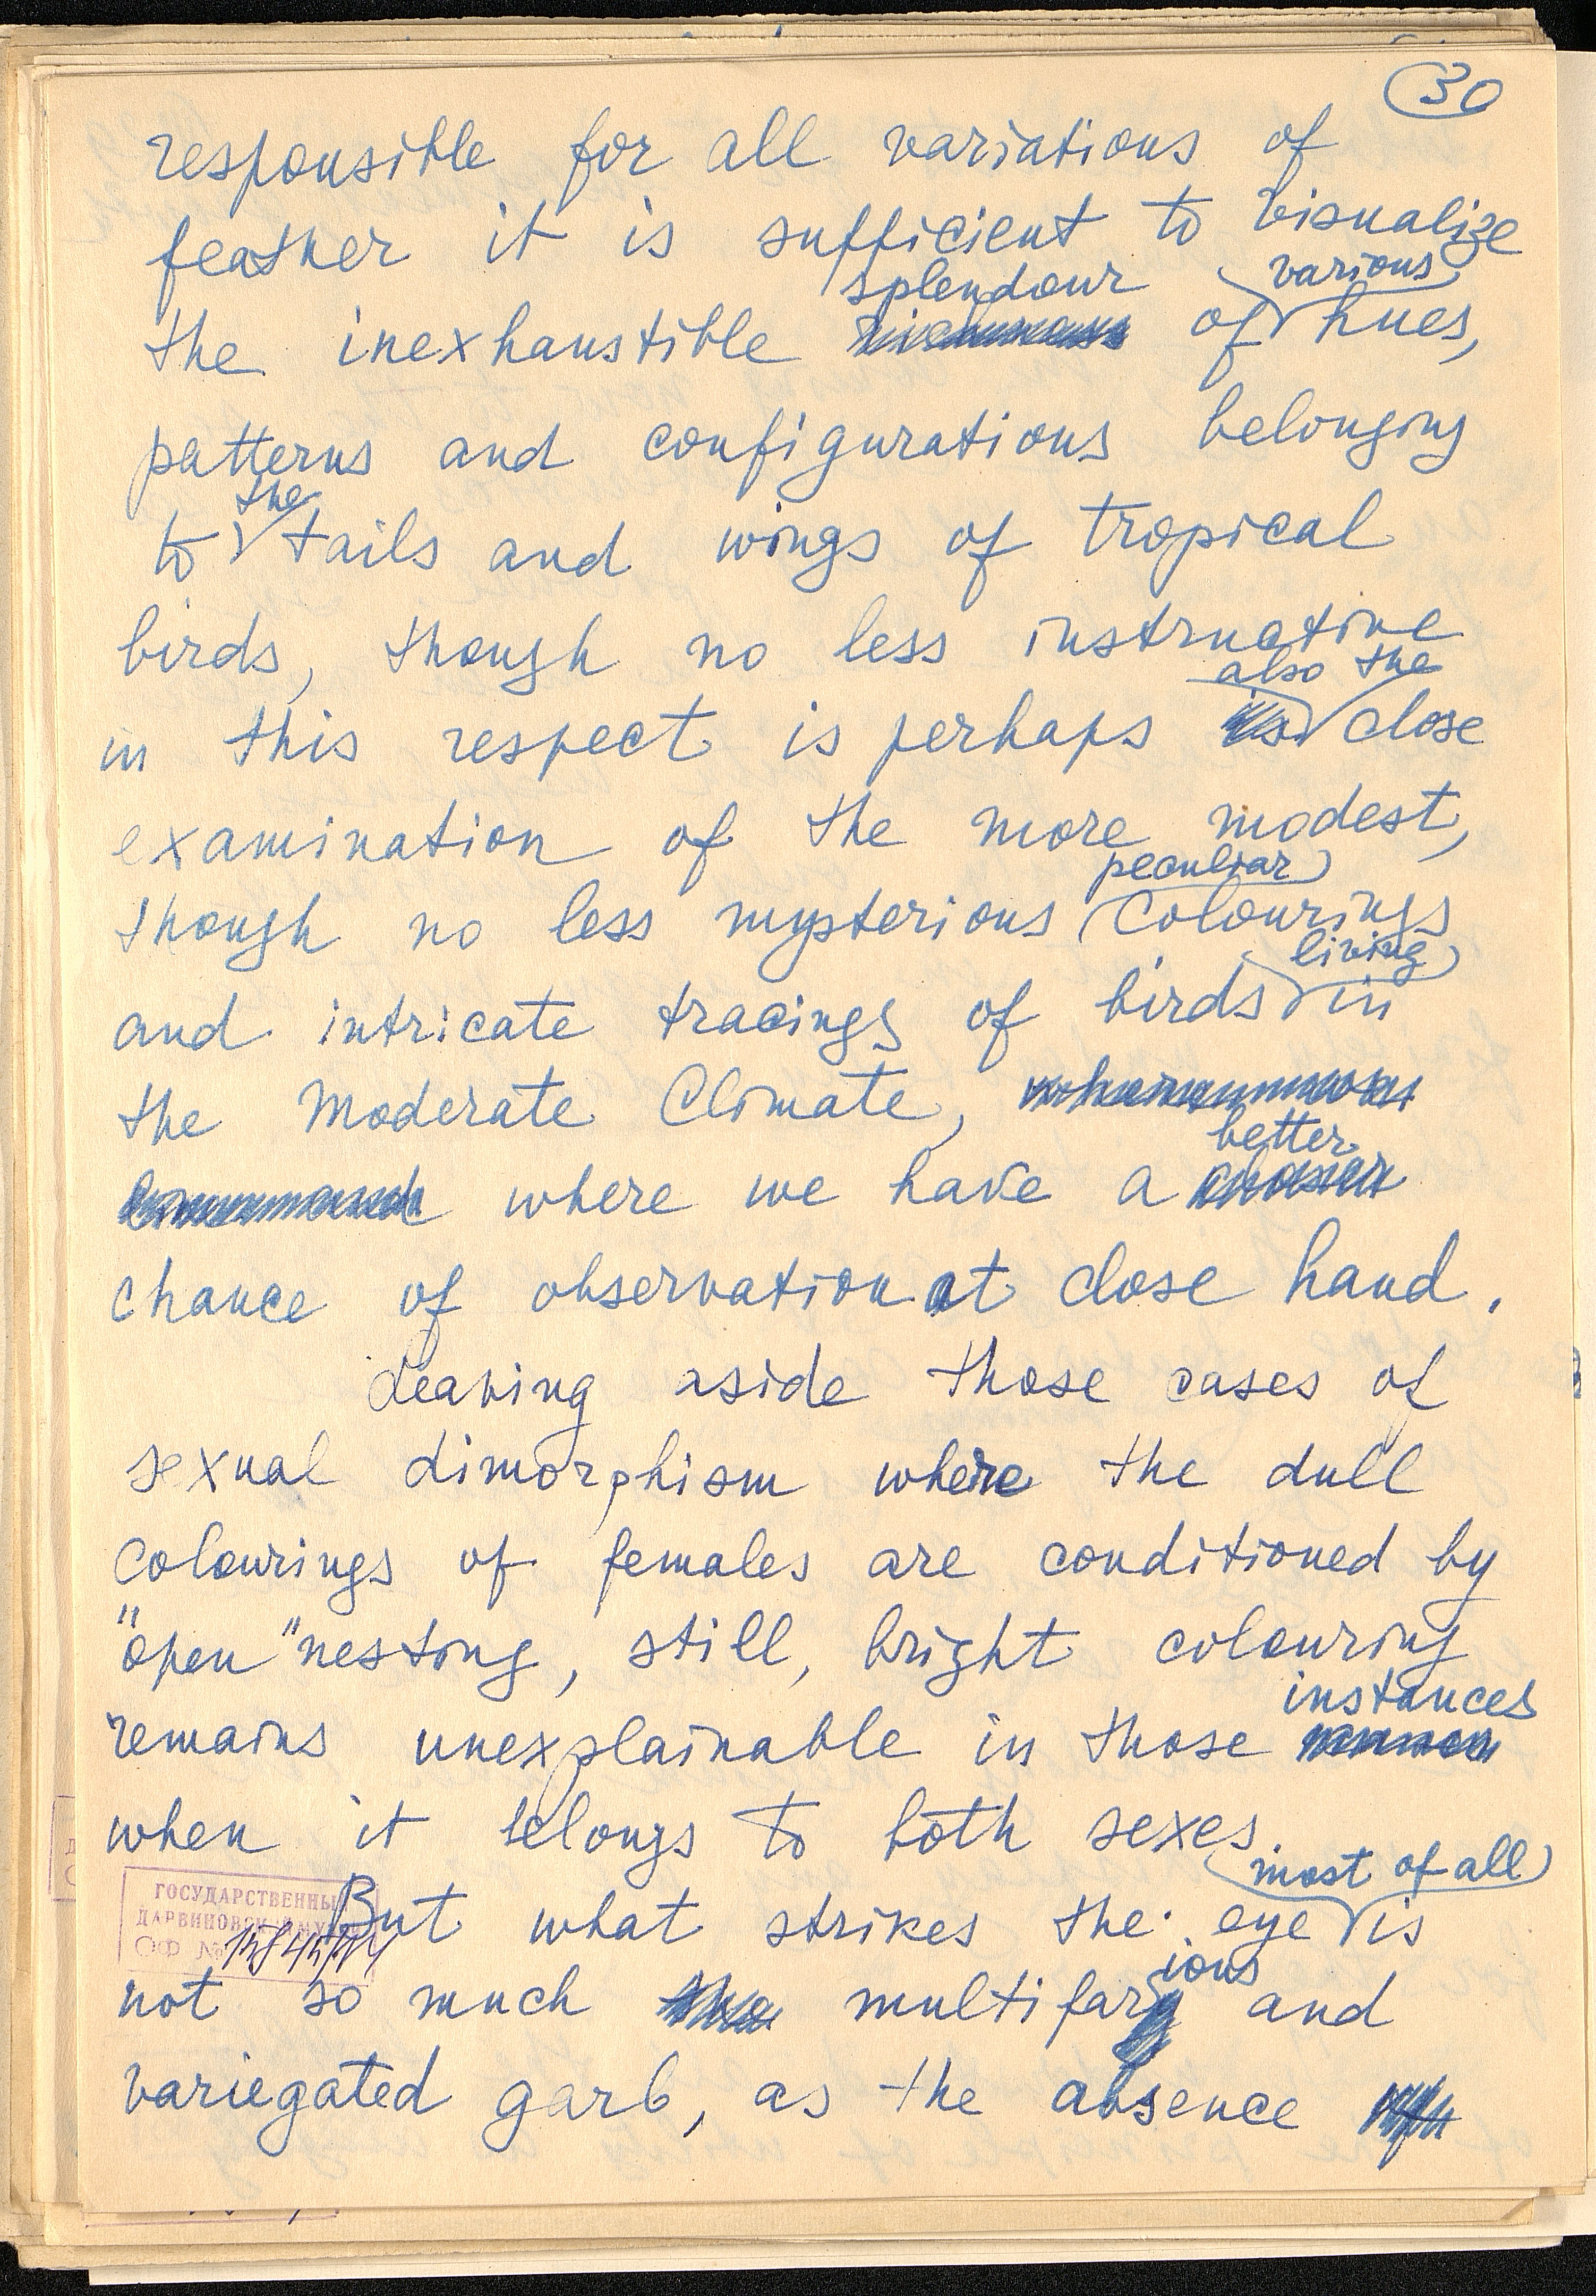 30
responsible for all variations of
feather it is sufficient to visualize
splendour various
the inexhaustible of hues,
patterns and configurations belonging
the
to tails and wings of tropical
birds, though no less instructive
also the
in this respect is perhaps close
examination of the more modest,
peculiar
though no less mysterious colourings
living
and intricate tracings of birds in
the Moderate Climate,
better
where we have a
chance of observation at close hand.
Leaving aside those cases of
sexual dimorphism where the dull
colourings of females are conditioned by
"open" nesting, still, bright colouring
instances
remains unexplainable in those
when it belongs to both sexes.
most of all
ГОСУДАРСТВЕННЫЙ
ДАРВИНОВСКИЙ МУЗЕЙ
ОФ №
But what strikes the eye is
ious
not so much the multifar and
variegated garb, as the absence